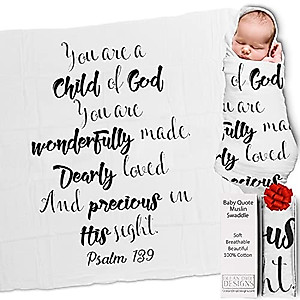 You are a
Child of God
You are
wonderfully made,
Dearly loved
And precious in
His sight.
Psalm 139
Child of God
You are
Baby Quote
Muslin
Swaddle
Soft
Breathable
Beautiful
100% Cotton
DESIGNS
us
t.